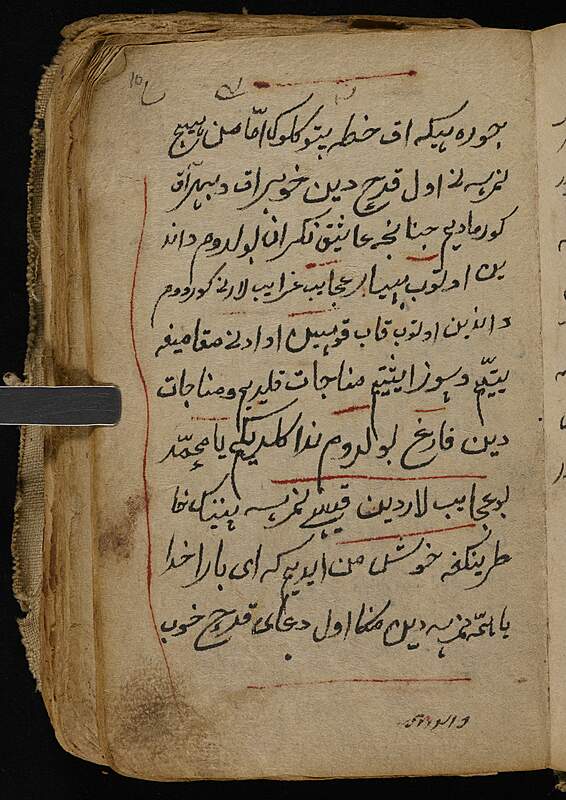 جوره بیکه اق خطه بتوکلوک اما من هیچ
نمرسه نی اول قدح دین خوبراق و بهراق
کورمادیم جنانجه عاشق نکران بولدوم داند
ین اوتوب بسیار عجایب غرایب لارنی کوردوم
و اندین اوتوب قاب قوسین او ادنی مقامیغه
یتیم و سوز ایتیم مناجات قلدیم و مناجات
دین فارغ بولدوم ندا کلدیکم یا محمد
بو عجایب لاردین قیسی نمرسه سنینک خا
طرینکغه خوش من ایدیم که ای بار خدا
یا همه نمرسه دین منکا اول دعای قدح خوب